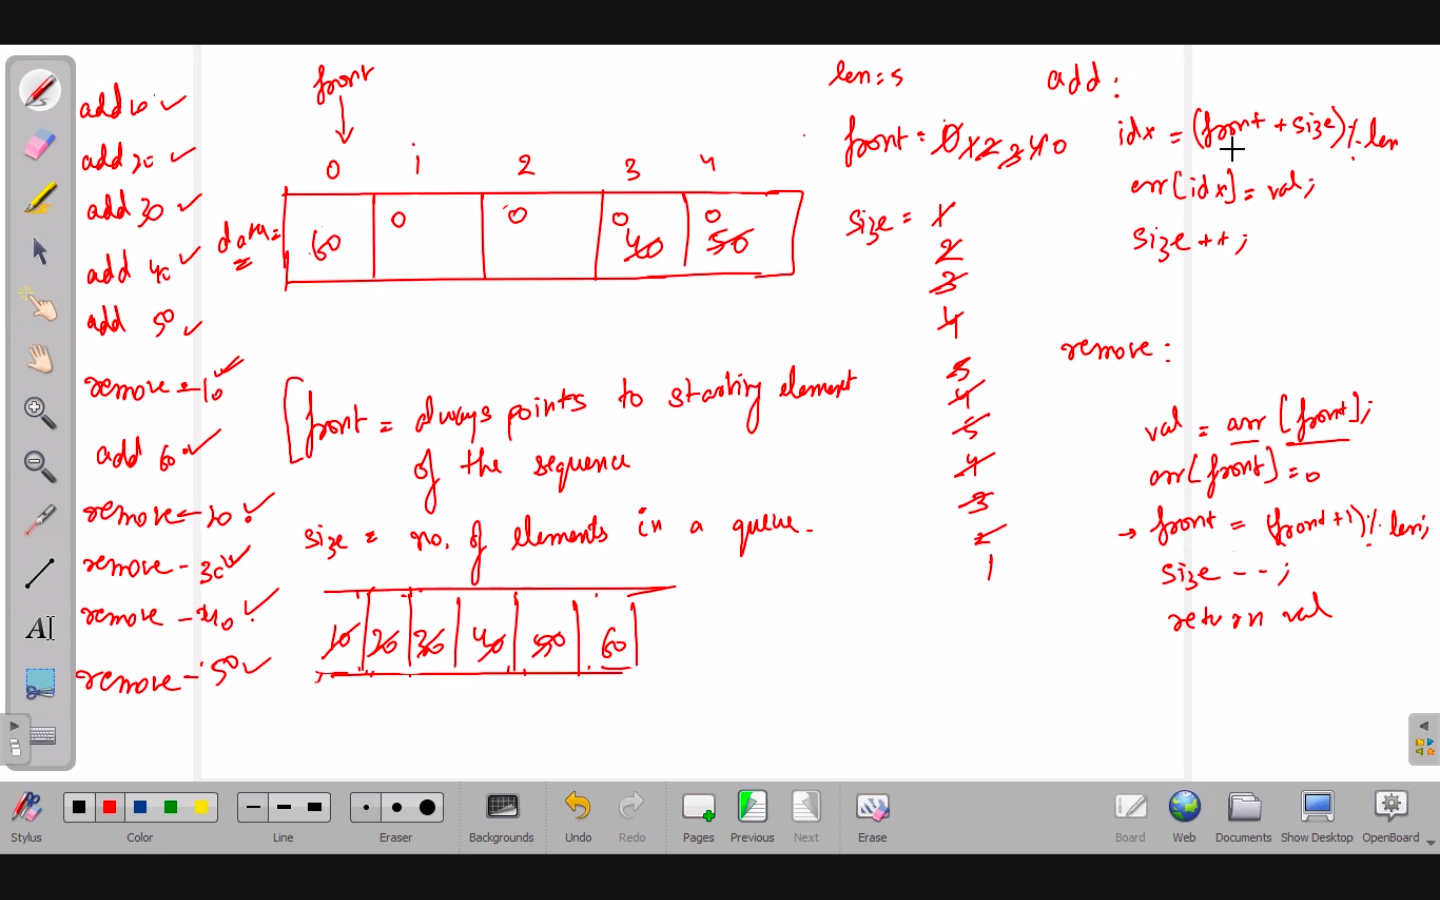 add 10 ✓
add 20 ✓
add 30 ✓
add 40 ✓
add 50 ✓
remove - 10 ✓
add 60 ✓
remove - 20 ✓
remove - 30 ✓
remove - 40 ✓
remove - 50 ✓
front
0 1 2 3 4
data =
60 0 0 0 40 0 50
[front = always points to starting element
of the sequence
size = no. of elements in a queue.
10 20 30 40 50 60
len = 5
front = 0 1 2 3 4 0
size = 1
2
3
4
5
4
5
4
3
2
1
add :
idx = (front + size) % len
arr[idx] = val;
size ++;
remove :
val = arr [front];
arr[front] = 0
→ front = (front + 1) % len;
size --;
return val
Stylus
Color
Line
Eraser
Backgrounds
Undo
Redo
Pages
Previous
Next
Erase
Board
Web
Documents
Show Desktop
OpenBoard